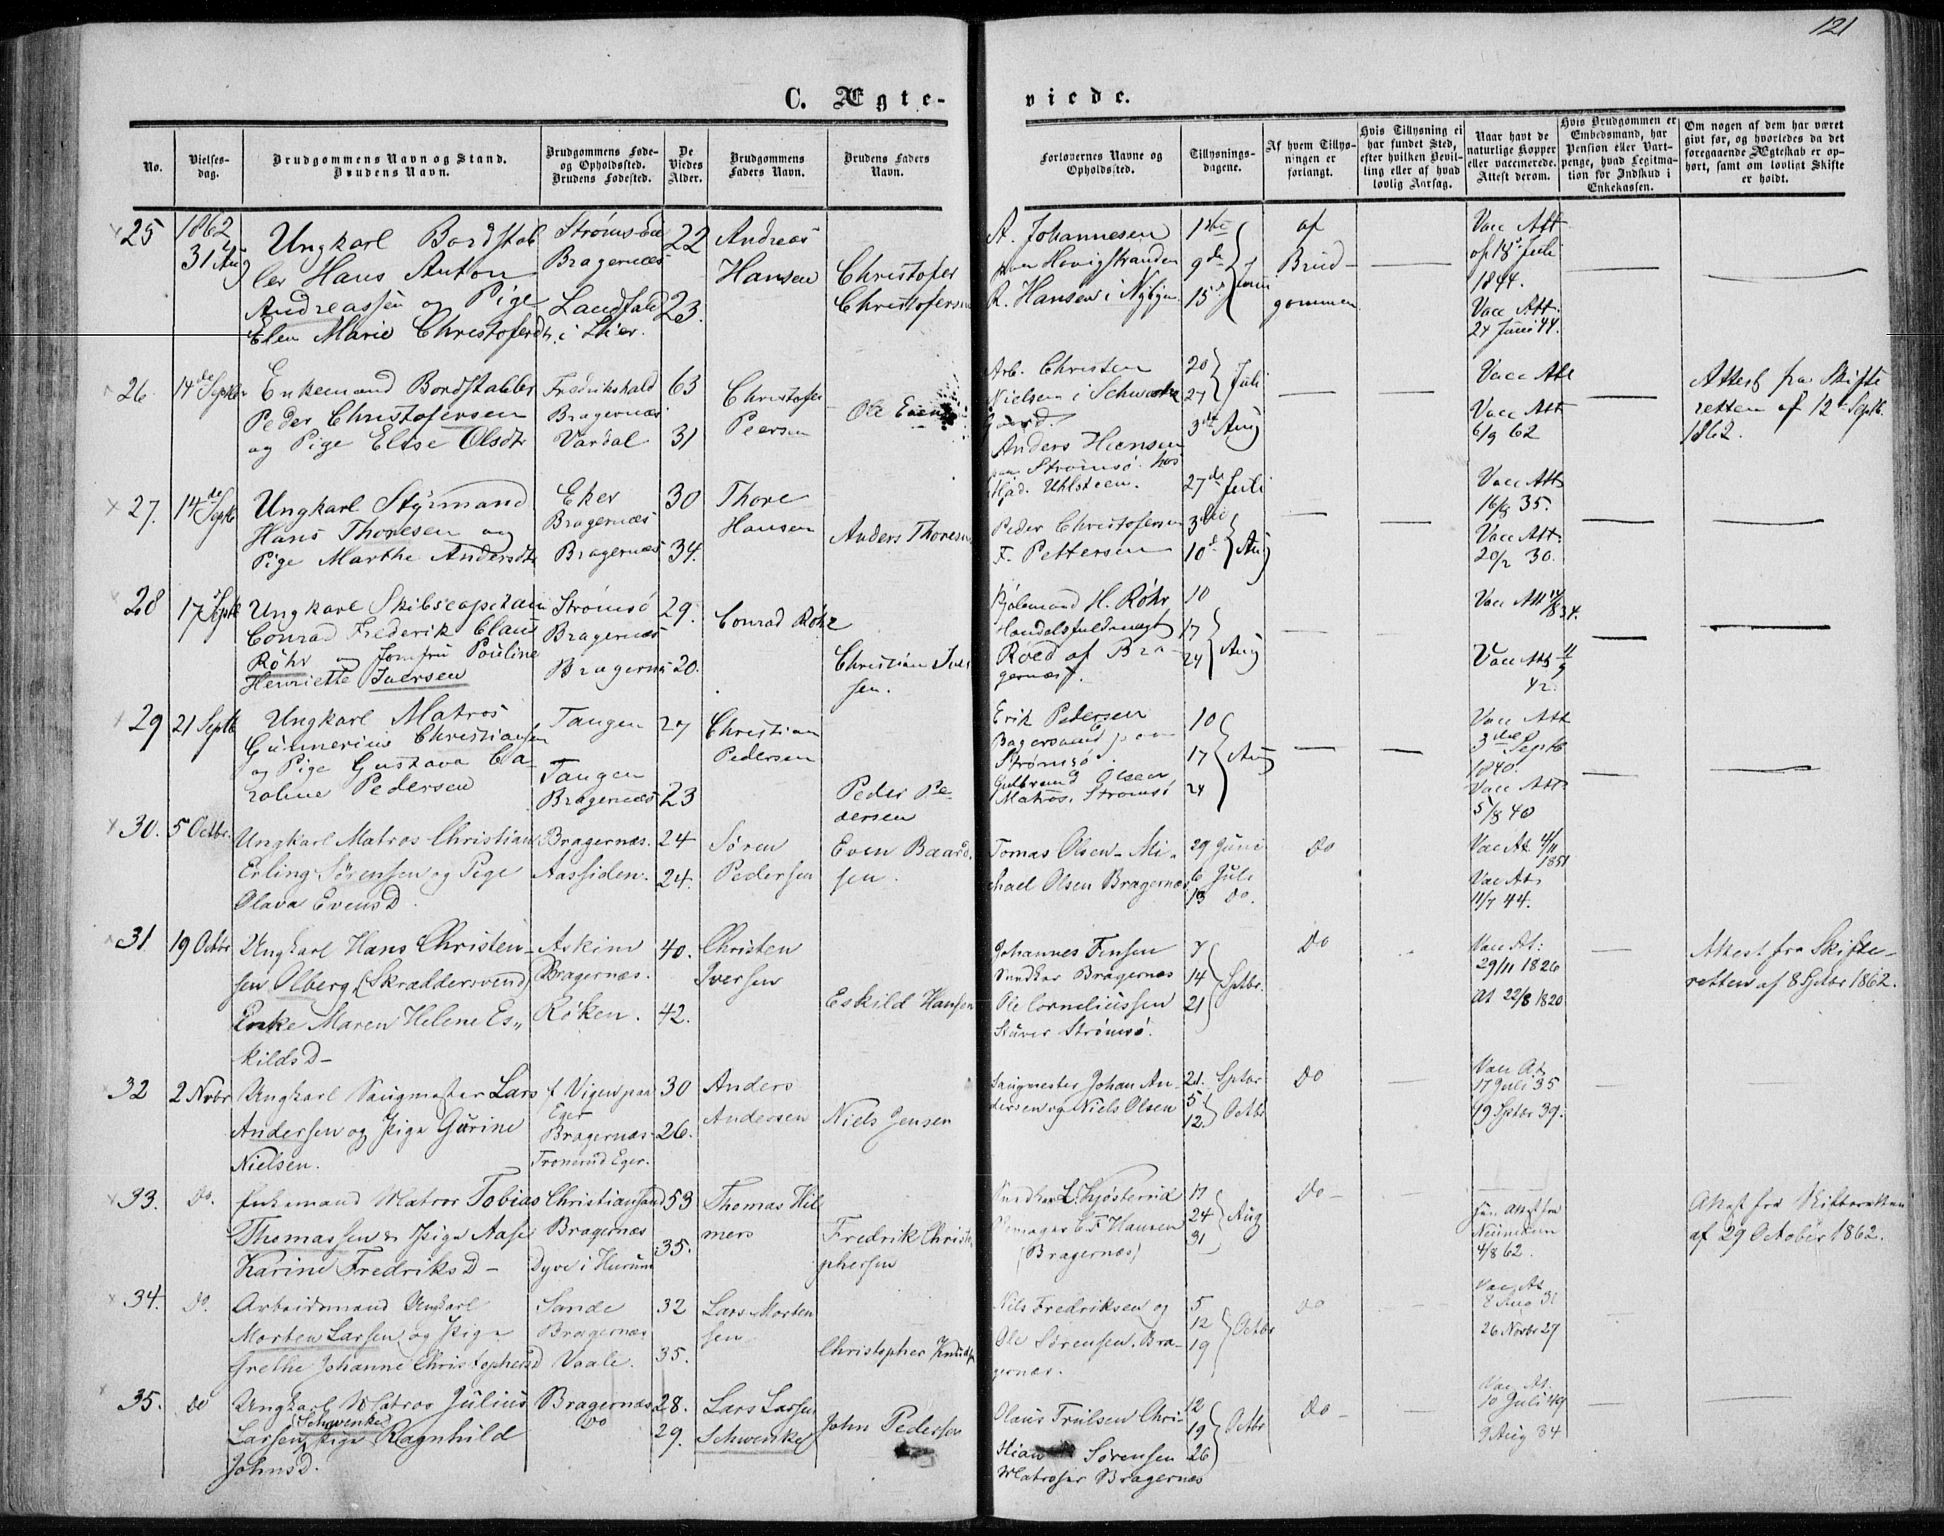 121
C. Ægte-
viede.
No.
Vielses-
dag.
Brudgommens Navn og Stand.
Brudens Navn.
Brudgommens Føde-
og Opholdssted.
Brudens Fødested.
De
Viedes
Alder.
Brudgommens
Faders Navn.
Brudens Faders
Navn.
Forlovernes Navne og
Opholdssted.
Tillysnings-
dagene.
Af hvem Tillys-
ningen er
forlangt.
Hvis Tillysning ei
har fundet Sted,
efter hvilken Bevil-
ling eller af hvad
lovlig Aarsag.
Naar havt de
naturlige Kopper
eller vaccinerede.
Attest derom.
Hvis Brudgommen er
Embedsmand, har
Pension eller Vart-
penge, hvad Legitima-
tion for Indskud i
Enkekassen.
Om nogen af dem har været
givt før, og hvorledes da det
foregaaende Ægteskab er op-
hørt, samt om lovligt Skifte
er holdt.
25
1862
31 Aug
Ungkarl Bordstab
ler Hans Anton
Andreassen og Pige
Elen Marie Christofersdtr.
Bragernæs
Landfald
i Lier.
22
23.
Andreas
Hansen
Christofer
Christofersen
A. Johannesen
paa Havigstranden
R. Hansen i Nybyen
1ste
9de
15de
Juni
af
Brud-
gommen
Vacc Att
af 18de Juli
1844.
Vacc Att.
24 Juni 44.
26.
14de Septbr
Enkemand Bordstabler
Peder Christofersen
og Pige Elise Olsdtr
Fredrikshald
Bragernæs
Vardal
63
31
Christofer
Peersen
Ole Even
Arb. Christen
Nielsen i Schwartz
Gaard.
Anders Hansen
paa Strømsø hos
Mad. Uhlsteen.
20
27
Juli
3die Aug
Vacc Att
Vacc Att
6/9 62
Attest fra Skifte
retten af 12te Septb.
1862.
27.
14de Septb
Ungkarl Styrmand
Hans Thoresen og
Pige Marthe Andersdtr
Eker
Bragernæs
Bragernæs
30
34.
Thore
Hansen
Anders Thoresen
Peder Christofersen
F. Pettersen
27de Juli
3die
10de
Aug
Vacc Att
16/8 35.
Vacc Att
20/2 30.
28
17 Septb
Ungkarl Skibscapitain
Conrad Frederik Claus
Røhr og Jomfru Pauline
Henriette Iversen
Strømsø
Bragernæs
Bragernæs
29.
20.
Conrad Røhr
Christian Iver
sen.
Kjøbmand H. Røhr
Handelsfuldmægt
Røed af Bra-
gernæs.
10
17
24
Aug
Vacc Att
34.
Vacc Att 11/9
42.
29
21 Septb
Ungkarl Matros
Gunnerius Christiansen
og Pige Gustava Ca
roline Pedersen
Tangen
Tangen
Bragernæs
27
23
Christian
Pedersen
Peder Pe
dersen
Erik Pedersen
Bagersvend paa
Strømsø.
Gulbrand Olsen
Matros. Strømsø
10
17
24
Aug
Vacc Att
3die Septb
1840.
Vacc Att
5/8 40
30.
5 Octbr.
Ungkarl Matros Christian
Erling Sørensen og Pige
Olava EvensD.
Bragernæs.
Aassiden.
24
24.
Søren
Pedersen
Even Baard-
sen.
Tomas Olsen - Mi-
chael Olsen Bragernæs
29 Juni
6 Juli
13 Do.
Do
Vac At. 4/11
1851
Vac At.
11/7 44.
31
19 Octbr
Ungkarl Hans Christen-
sen Olberg (Skræddersvend)
Enke Maren Helene Es-
kildsD-
Askim
Bragernæs.
Røken.
40.
42.
Christen
Iversen
Eskild Hansen
Johannes Jensen
Sundkar Bragernæs
Ole Corneliussen
Stuver Strømsø.
7
14
21
Sptbr.
Do
Vac At:
29/11 1826
At 22/8 1820
Attest fra Skifte-
retten af 8 Sptbr 1862.
32
2 Nvbr
Ungkarl Saugmester Lars
Andersen og Pige Gurine
Nielsen.
f Vigen paa
Eger
Bragernæs
Tronerud Eger.
30
26.
Anders
Andersen
Niels Jensen
Saugmester Johan An-
dersen og Niels Olsen
21. Sptbr
5
12
Octbr
Do
Vac At.
17 Juli 35
19 Sptbr 39.
33.
Do.
Enkemand Matros Tobias
Thomassen & Pige Aase
Karine FredriksD-
Christiansand
Bragernæs
Dyve i Hurum
53
35.
Thomas Hil
mers
Fredrik Christo
phersen
E.F Hansen
(Bragernæs)
17
24
31
Aug
Do-
4/8 62.
Attest fra Skifteretten
af 29 October 1862.
34.
Do.
Arbeidsmand Ungkarl
Morten Larsen og Pige
Grethe Johanne ChristophersD
Sande
Bragernæs
Vaale.
32
35.
Lars Morten
sen
Christopher Knudsen
Nils Fredriksen og
Ole Sørensen. Bra-
gernæs.
5
12
19
Octbr
Do
Vac At
8 Aug 31
26 Novbr 27
35.
Do
Ungkarl Matros Julius
Larsen Schwenke Pige Ragnhild
JohnsD.
Bragernæs
Do
28.
29.
Lars Larsen
Schwenke
John Pedersen
Olaus Trulsen Chri-
stian Sørensen
Matroser Bragernæs
12
19
26
Octbr
Do-
Vac. At.
10 Juli 49
9 Aug 34